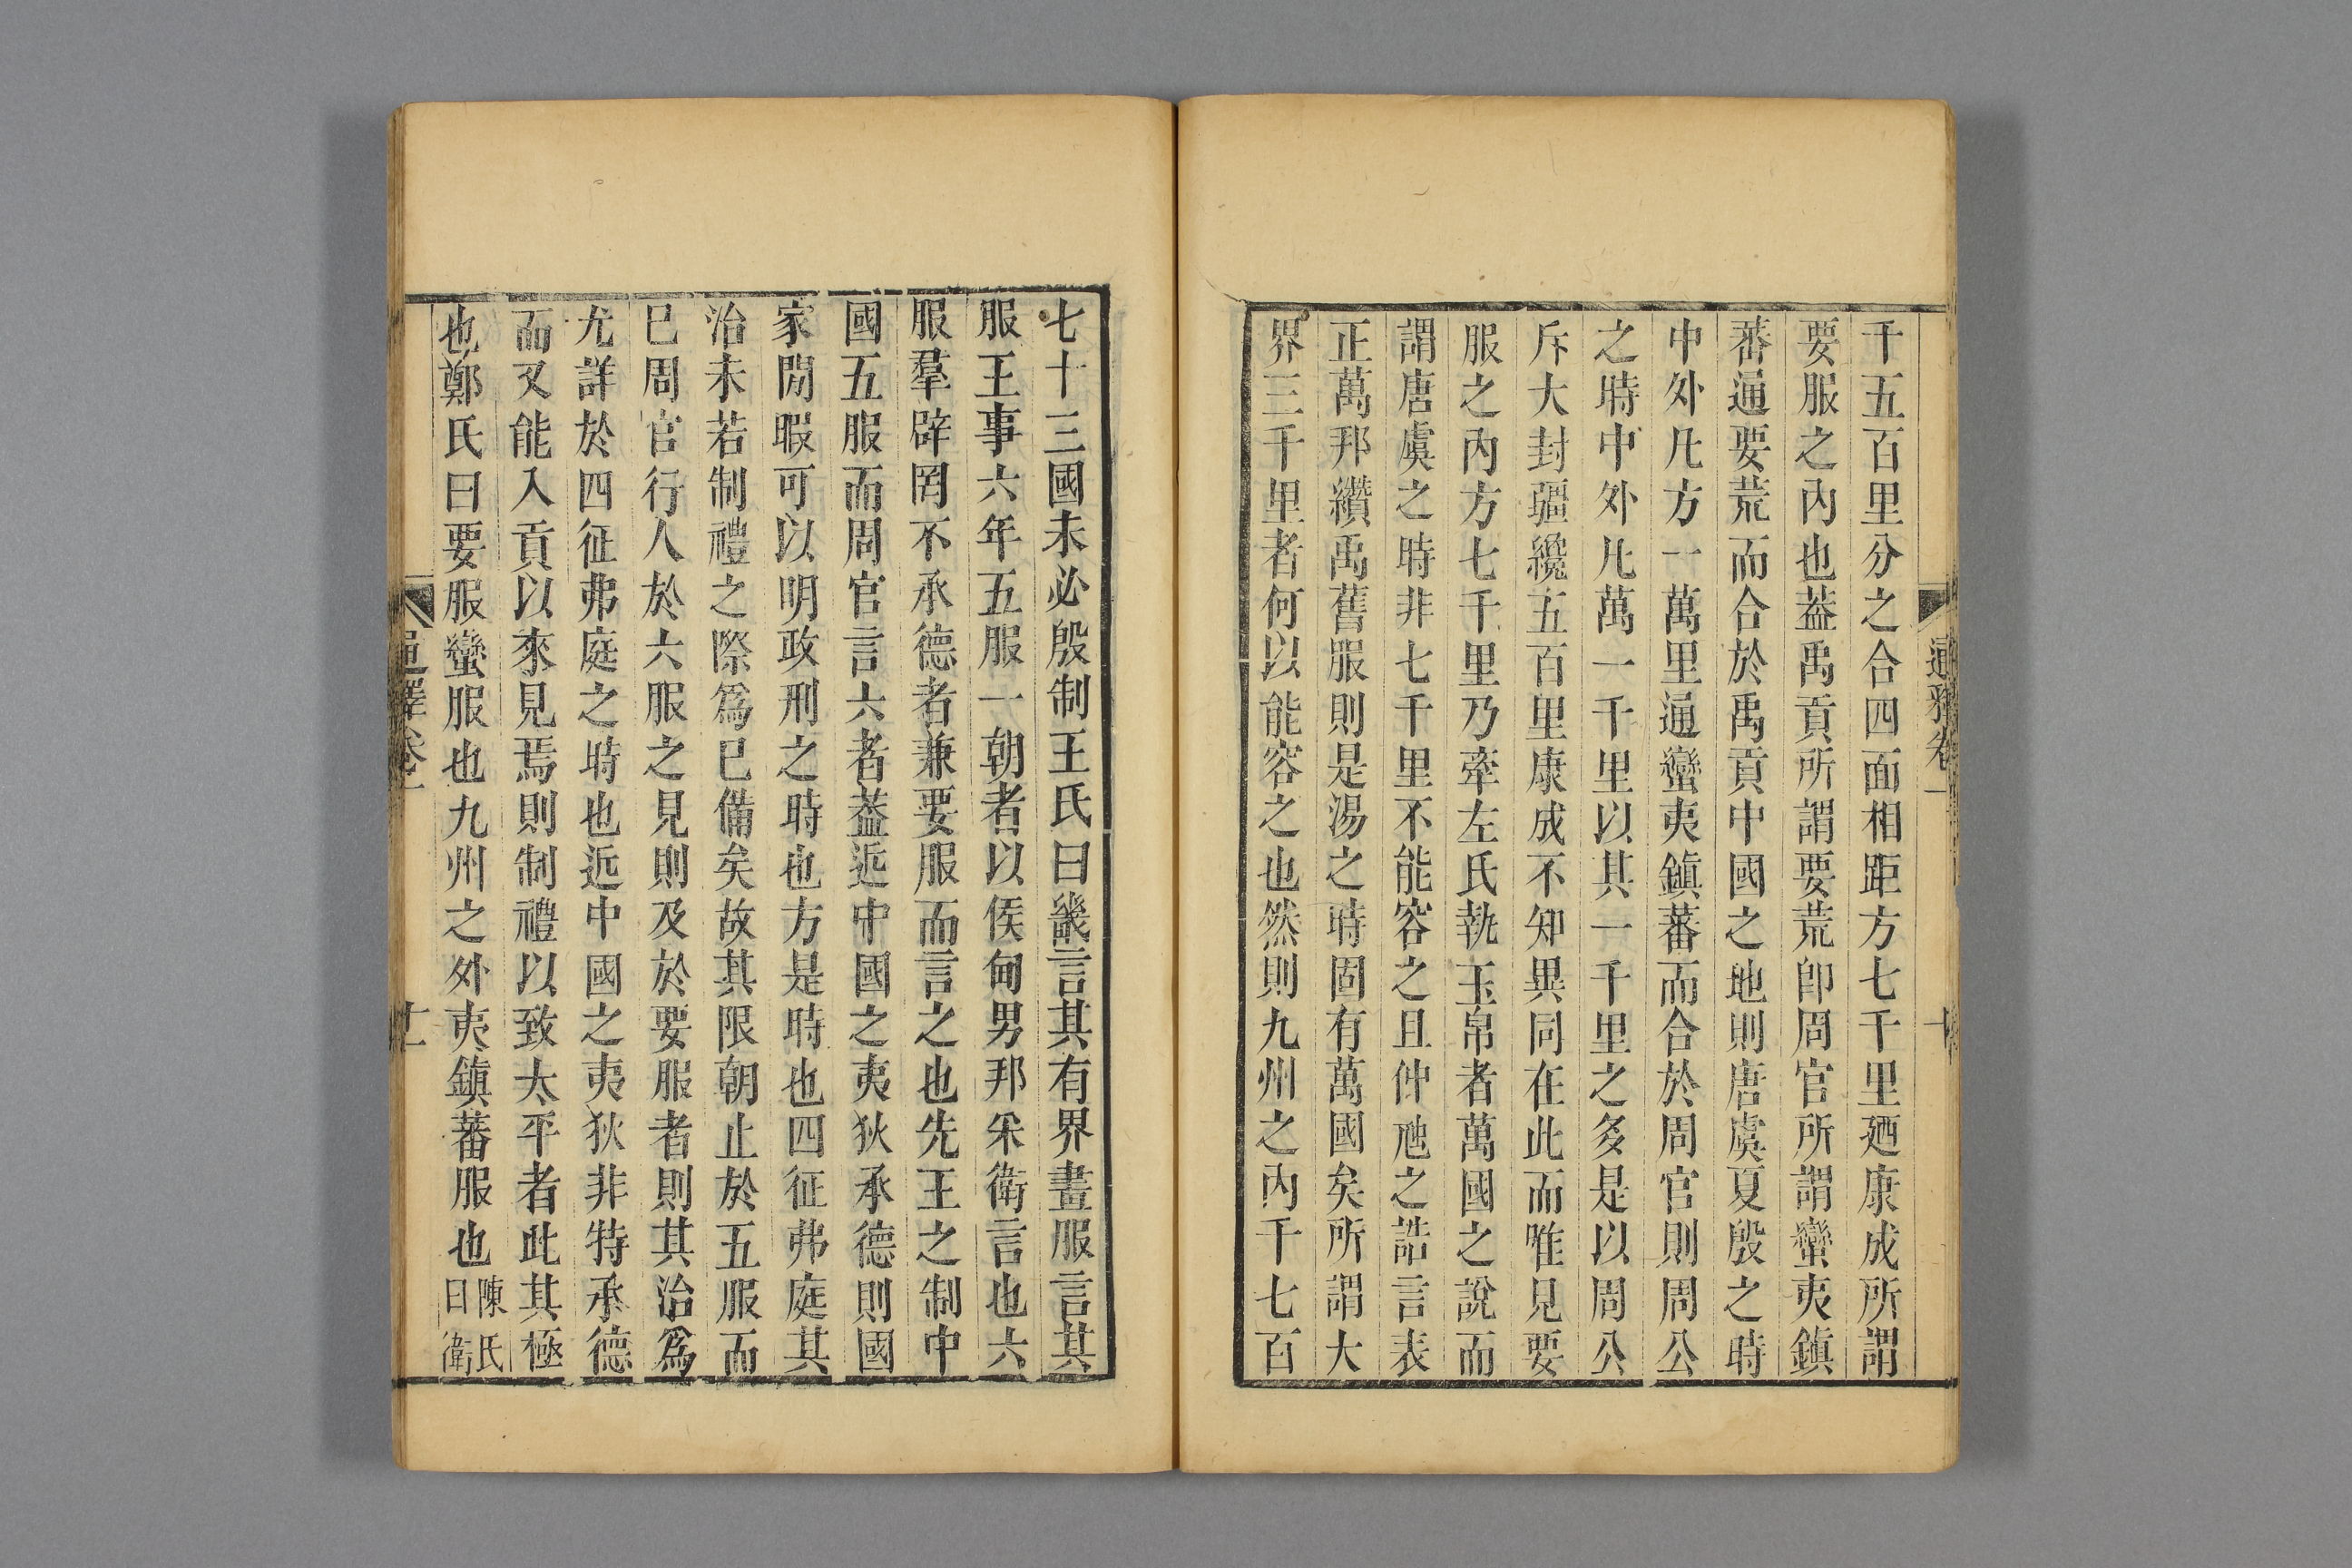 千五百里分之合四面相距方七千里廼康成所謂
要服之內也葢禹貢所謂要荒卽周官所謂蠻夷鎭
蕃通要荒而合於禹貢中國之地則唐虞夏殷之時
中外凡方一萬里通蠻夷鎭蕃而合於周官則周公
之時中外凡萬一千里以其一千里之多是以周公
斥大封疆纔五百里康成不知異同在此而唯見要
服之內方七千里乃牽左氏執玉帛者萬國之說而
謂唐虞之時非七千里不能容之且仲虺之誥言表
正萬邦纘禹舊服則是湯之時固有萬國矣所謂大
界三千里者何以能容之也然則九州之內千七百
七十三國未必殷制王氏曰畿言其有界畫服言其
服王事六年五服一朝者以侯甸男邦采衛言也六
服羣辟罔不承德者兼要服而言之也先王之制中
國五服而周官言六者葢近中國之夷狄承德則國
家閒暇可以明政刑之時也方是時也四征弗庭其
治未若制禮之際爲已備矣故其限朝止於五服而
已周官行人於六服之見則及於要服者則其治爲
尤詳於四征弗庭之時也近中國之夷狄非特承德
而又能入貢以來見焉則制禮以致太平者此其極
也鄭氏曰要服蠻服也九州之外夷鎭蕃服也陳氏
曰衛